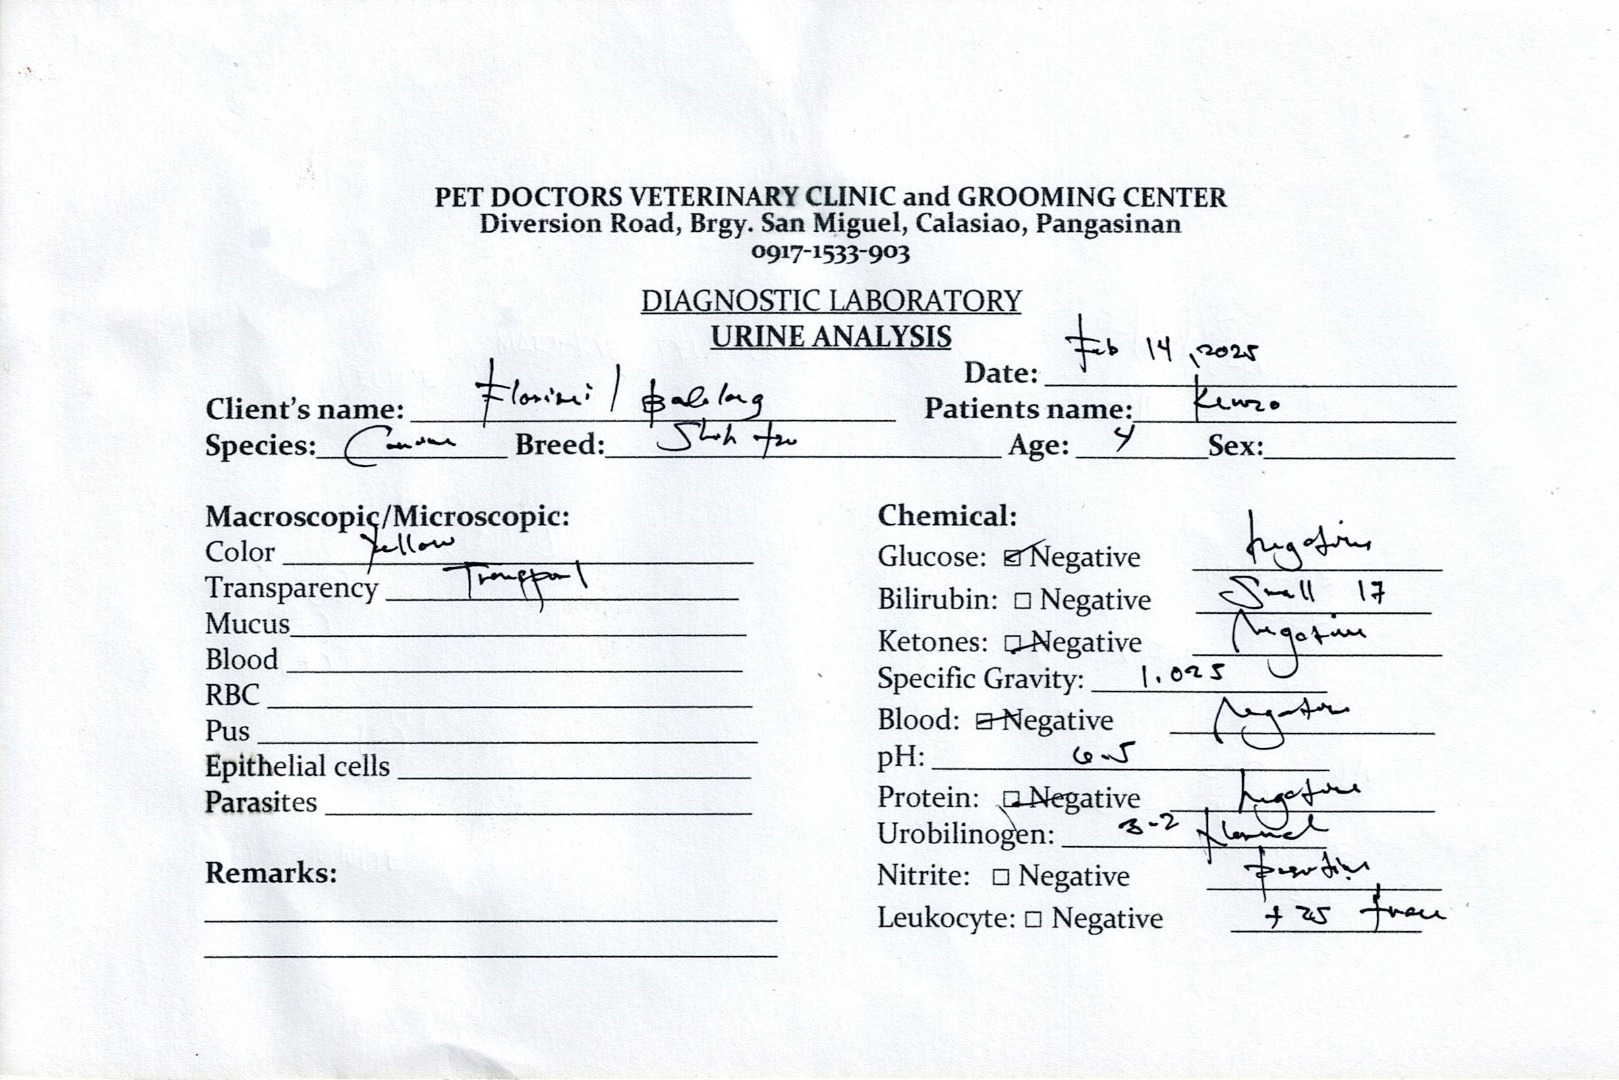 PET DOCTORS VETERINARY CLINIC and GROOMING CENTER
Diversion Road, Brgy. San Miguel, Calasiao, Pangasinan
0917-1533-903
DIAGNOSTIC LABORATORY
URINE ANALYSIS
Date: Feb 14, 2025
Client's name: / Patients name: Kenzo
Species: Canine Breed: Shih tzu Age: 4 Sex:
Macroscopic/Microscopic:
Color Yellow
Transparency
Mucus
Blood
RBC
Pus
Epithelial cells
Parasites
Remarks:
Chemical:
Glucose: ☑ Negative Negative
Bilirubin: ☐ Negative Small 17
Ketones: ☑ Negative Negative
Specific Gravity: 1.025
Blood: ☑ Negative Negative
pH: 6.5
Protein: ☑ Negative Negative
Urobilinogen: 3-2 Normal
Nitrite: ☐ Negative Positive
Leukocyte: ☐ Negative + 25 trace